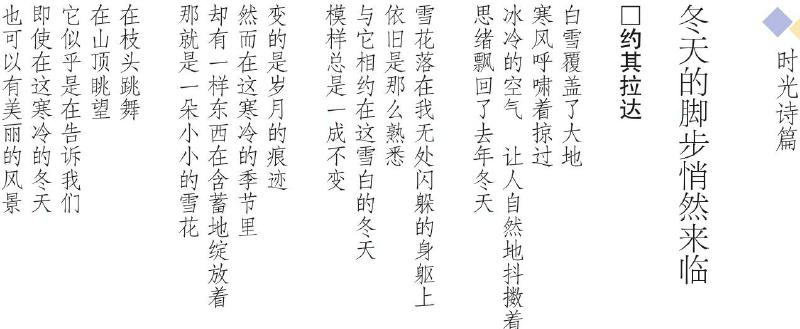 时光诗篇
冬天的脚步悄然来临
□约其拉达
白雪覆盖了大地
寒风呼啸着掠过
冰冷的空气　让人自然地抖擞着
思绪飘回了去年冬天
雪花落在我无处闪躲的身躯上
依旧是那么熟悉
与它相约在这雪白的冬天
模样总是一成不变
变的是岁月的痕迹
然而在这寒冷的季节里
却有一样东西在含蓄地绽放着
那就是一朵小小的雪花
在枝头跳舞
在山顶眺望
它似乎是在告诉我们
即使在这寒冷的冬天
也可以有美丽的风景